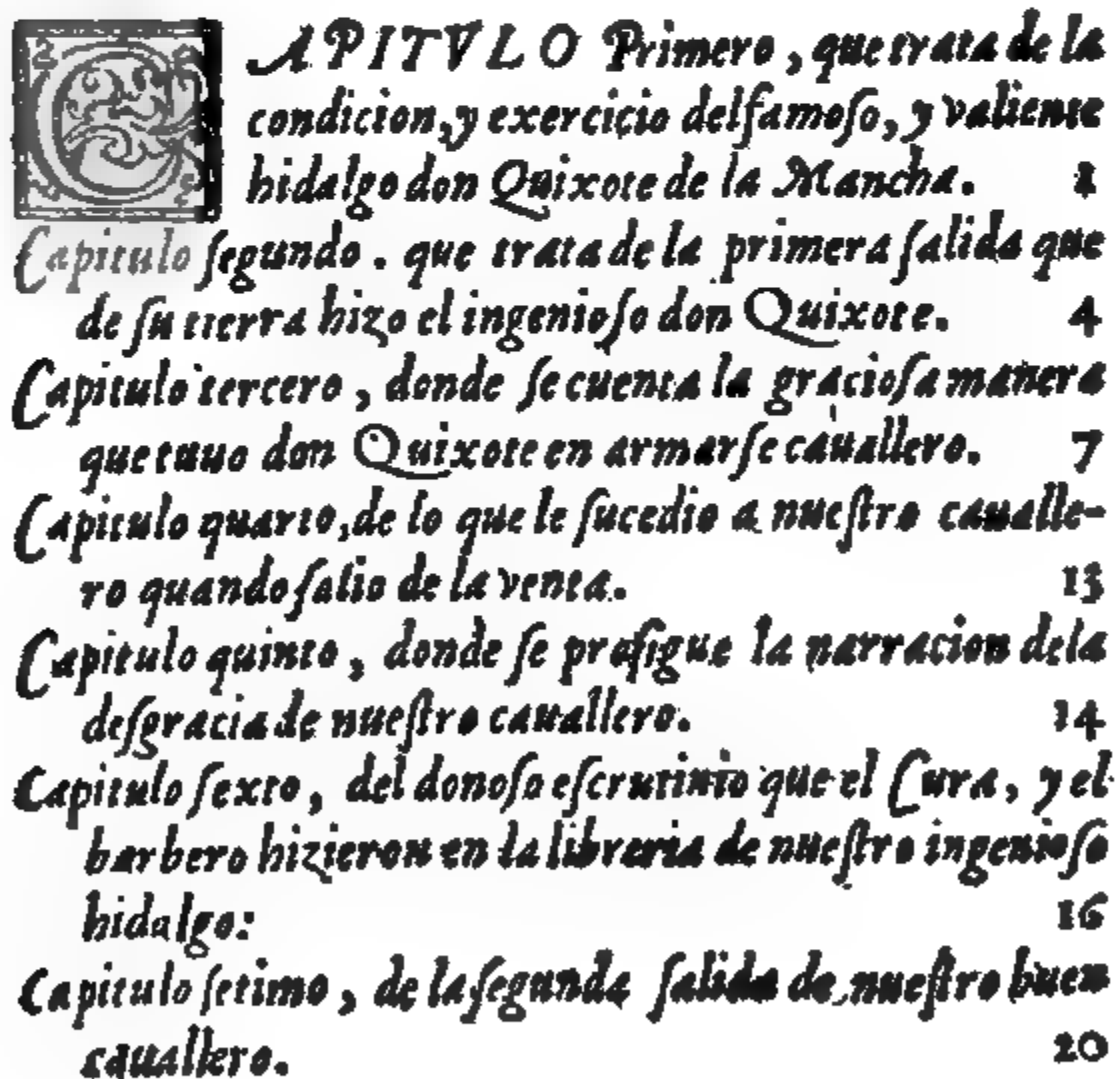 CAPITVLO Primero, que trata de la
condicion, y exercicio del famoſo, y valiente
hidalgo don Quixote de la Mancha. 1
Capitulo ſegundo. que trata de la primera ſalida que
de ſu tierra hizo el ingenioſo don Quixote. 4
Capitulo tercero, donde ſe cuenta la gracioſa manera
que tuuo don Quixote en armarſe cauallero. 7
Capitulo quarto, de lo que le ſucedio a nueſtro caualle-
ro quando ſalio de la venta. 13
Capitulo quinto, donde ſe proſigue la narracion dela
deſgracia de nueſtro cauallero. 14
Capitulo ſexto, del donoſo eſcrutinio que el Cura, y el
barbero hizieron en la libreria de nueſtro ingenioſo
hidalgo: 16
Capitulo ſetimo, de la ſegunda ſalida de nueſtro buen
cauallero. 20